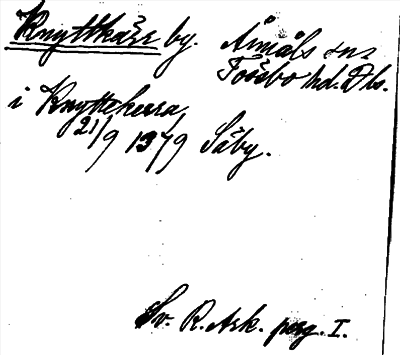 Knyttkärr by. Åmåls sn
Tössbo hd. Dls.
i Knyttekerra
21/9 1379 Säby.
Sv. R. Ark. perg. I.